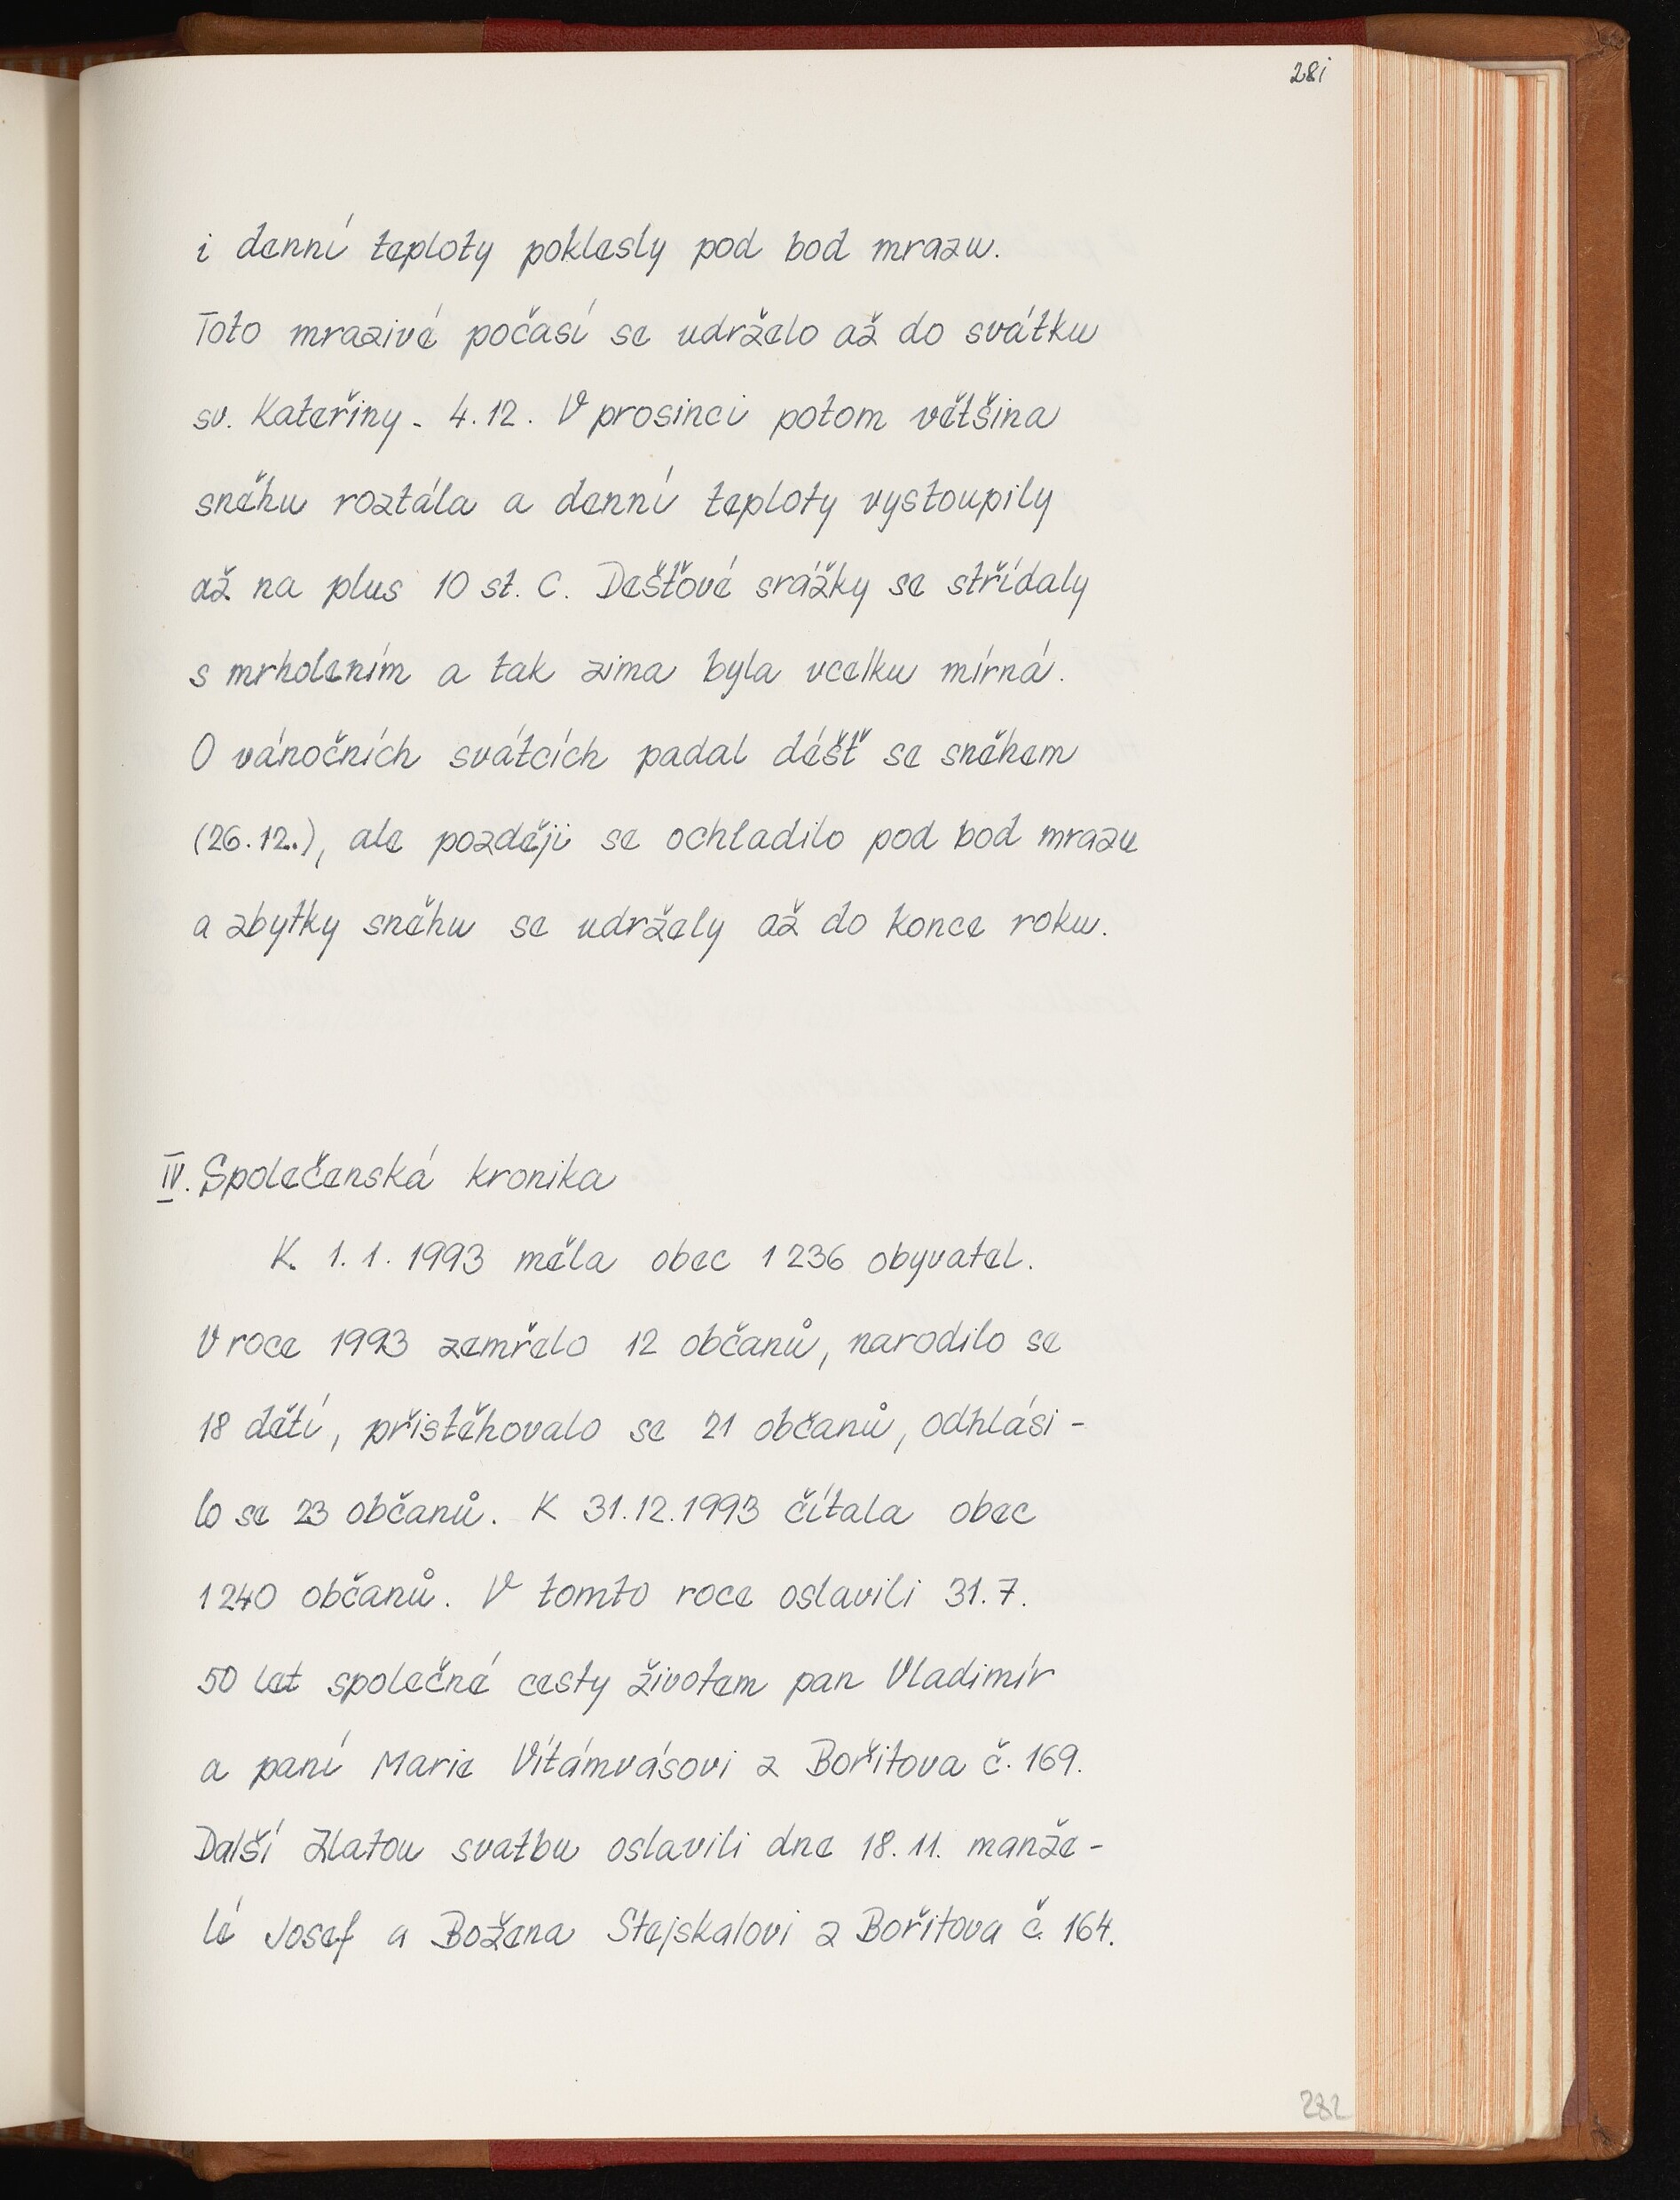 281
i denní teploty poklesly pod bod mrazu.
Toto mrazivé počasí se udrželo až do svátku
sv. Kateřiny - 4.12. V prosinci potom většina
sněhu roztála a denní teploty vystoupily
až na plus 10 st. C. Dešťové srážky se střídaly
s mrholením a tak zima byla vcelku mírná.
O vánočních svátcích padal déšť se sněhem
(26.12.), ale později se ochladilo pod bod mrazu
a zbytky sněhu se udržely až do konce roku.
IV. Společenská kronika
K 1.1.1993 měla obec 1236 obyvatel.
V roce 1993 zemřelo 12 občanů, narodilo se
18 dětí, přistěhovalo se 21 občanů, odhlási-
lo se 23 občanů. K 31.12.1993 čítala obec
1240 občanů. V tomto roce oslavili 31.7.
50 let společné cesty životem pan Vladimír
a paní Marie Vítámvásovi z Bořitova č. 169.
Další Zlatou svatbu oslavili dne 18.11. manže-
lé Josef a Božena Stejskalovi z Bořitova č. 164.
282